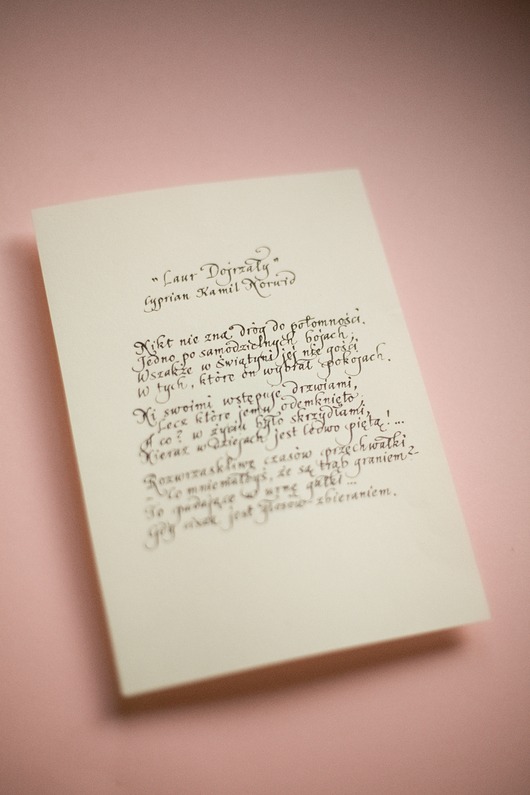 "Laur Dojrzały"
Cyprian Kamil Norwid
Nikt nie zna dróg do potomności.
Jedno po samodzielnych bojach;
Wszakże w Świątyni jej nie gości
W tych, które on wybrał pokojach.
Ni swoimi wstępuje drzwiami,
Lecz które jemu odemknięto;
A co? w życiu było skrzydłami,
Nieraz w dziejach jest ledwo piętą!...
Rozwrzaskliwe czasów przechwałki
- Co mniemałbyś, że są trąb graniem?-
To padające w urnę gałki...
Gdy cisza jest głosów zbieraniem.